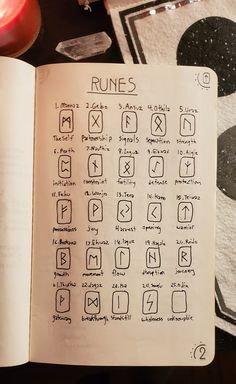 RUNES
1. Mannaz 2. Gebo 3. Ansuz 4. Othila 5. Uruz
The Self Partnership signals separation strength
6. Perth 7. Nauthiz 8. Inguz 9. Eihwaz 10. Algiz
initiation constraint fertility defense protection
11. Fehu 12. Wunjo 13. Jera 14. Kano 15. Teiwaz
possessions Joy Harvest opening warrior
16. Berkana 17. Ehwaz 18. Laguz 19. 20. Raido
growth movement flow disruption journey
21. 22. 23. Isa 24. 25.
gateway breakthrough standstill wholeness unknowable
2